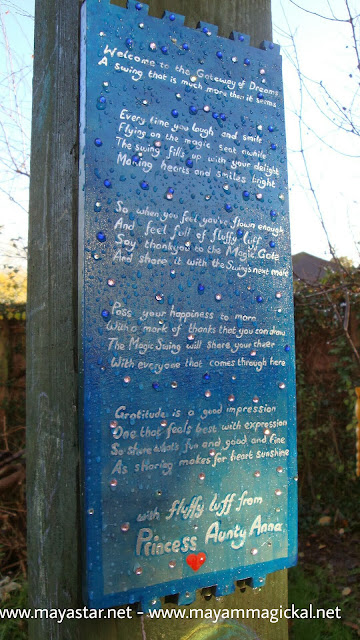 Welcome to the Gateway of Dreams
A swing that is much more then it seems
Every time you laugh and smile
Flying on the magic seat awhile
The swing fills up with your delight
Making hearts and smiles bright
So when you feel you've flown enough
And feel full of fluffy luff
Say thankyou to the Magic Gate
And share it with the Swing's next mate
Pass your happiness to more
With a mark of thanks that you can draw
The Magic Swing will share your cheer
With everyone that comes through here
Gratitude is a good impression
One that feels best with expression
So share what's fun and good and fine
As sharing makes for heart sunshine
with fluffy luff from
Princess Aunty Anna
www.mayastar.net - www.mayammagickal.net